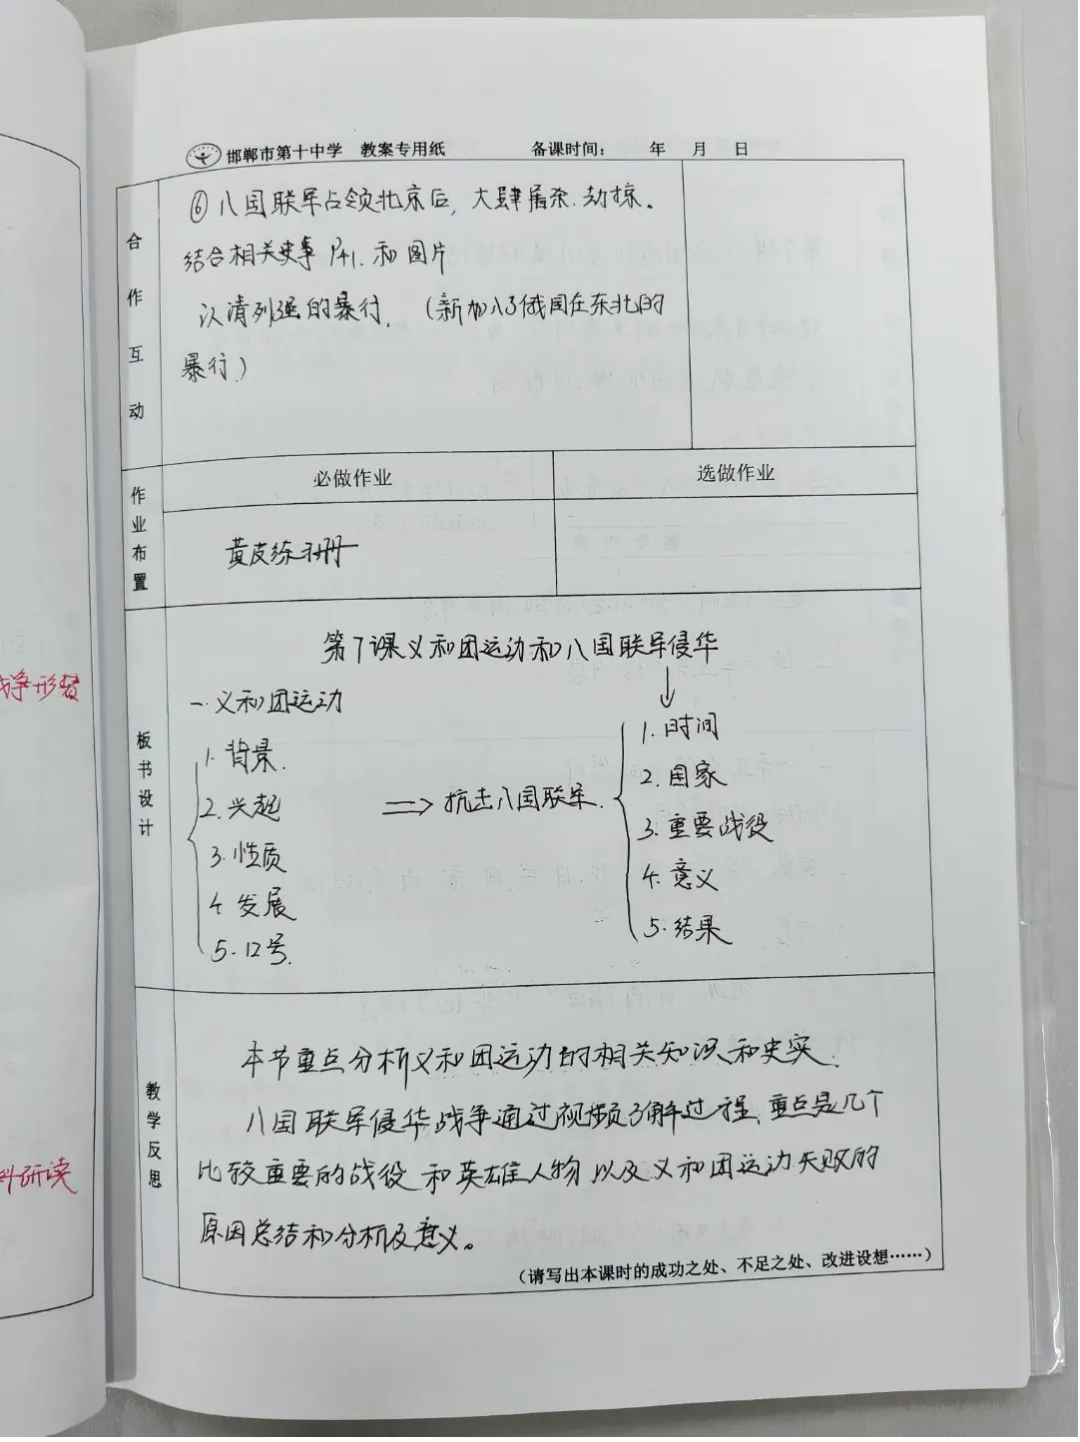 邯郸市第十中学 教案专用纸 备课时间： 年 月 日
合作互动
⑥八国联军占领北京后，大肆屠杀、劫掠。
结合相关史事 P41. 和图片
认清列强的暴行. （新加入了俄国在东北的
暴行）
作业布置
必做作业 选做作业
黄皮练习册
板书设计
第7课义和团运动和八国联军侵华
一.义和团运动
1.背景.
2.兴起
3.性质
4.发展
5.口号.
⇒ 抗击八国联军.
↓
1.时间
2.国家
3.重要战役
4.意义
5.结果
教学反思
本节重点分析义和团运动的相关知识和史实.
八国联军侵华战争通过视频了解过程,重点是几个
比较重要的战役和英雄人物以及义和团运动失败的
原因总结和分析及意义。
（请写出本课时的成功之处、不足之处、改进设想……）
战争形势
研读